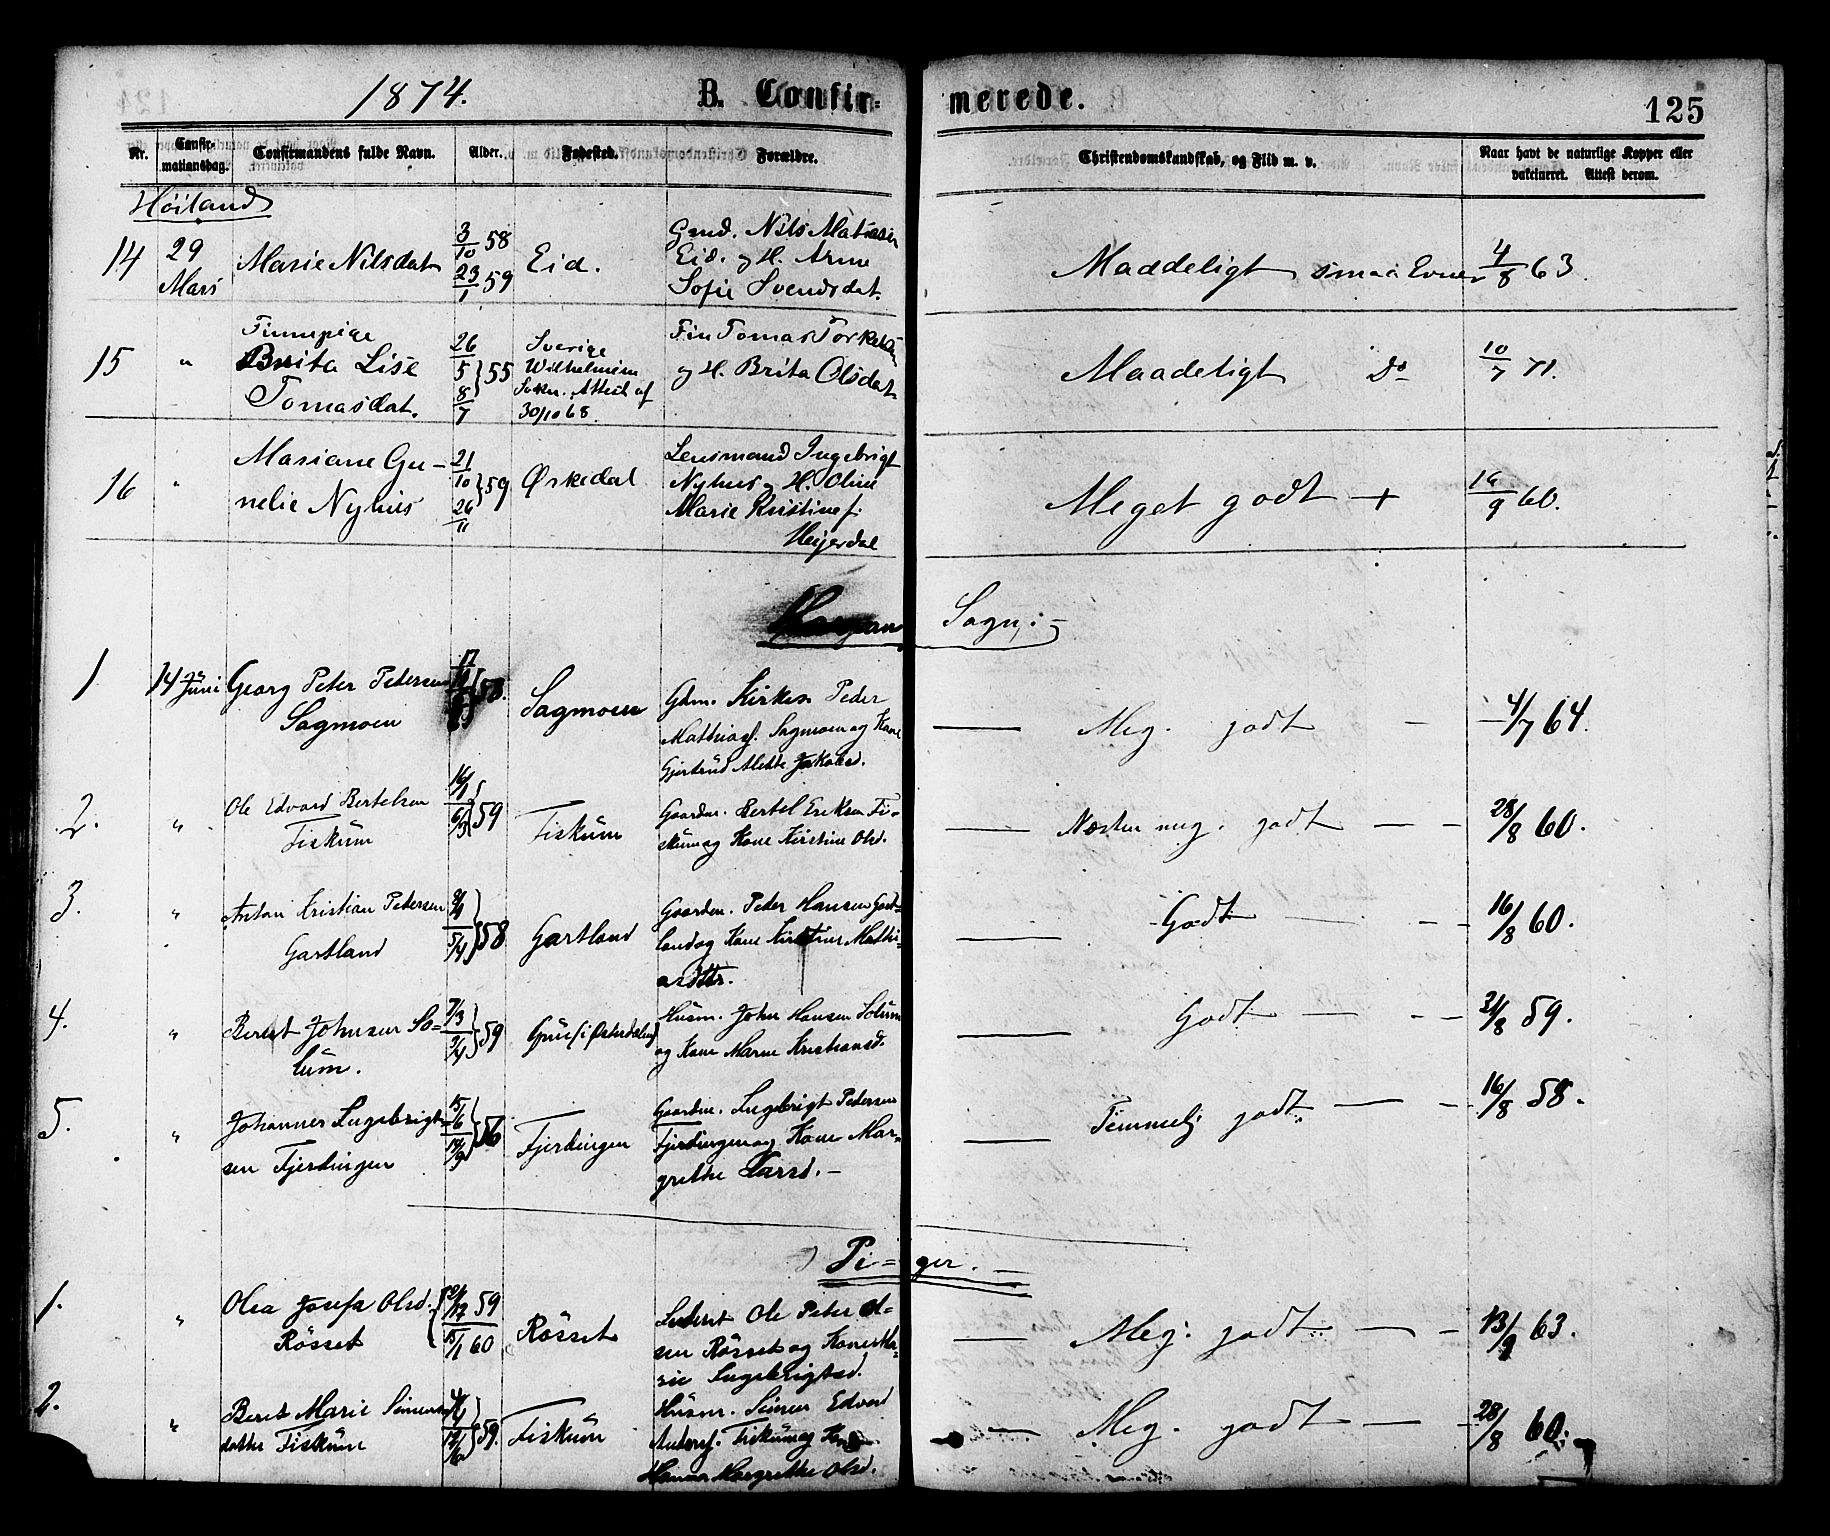 1874. B. Confir= merede. 125
Nr. Confir-mationsdag. Confirmandens fulde Navn. Alder. Fødested. Forældre. Christendomskundskab, og Flid m. v. Naar havt de naturlige Kopper eller vaktineret. Attest derom.
Høiland
14 29 Mars Marie Nilsdat 3/10 58 23/1 59 Eid. Gmd.
Nils Matiasen
Eid. og H. Arne
Sofie Svendsdat.
Maadeligt smaa Evner 4/8 63
15 " Finnepige
Brita Lise
Tomasdat.
26/5 8/7 } 55
Sverige
Wilhelmina
Sokn. Attest af
30/10 68.
Fin Tomas Torkelsen
og H. Brita Olsdat.
Maadeligt Do 10/7 71.
16 " Mariane Gu-
nelie Nyhus
21/10 26/11 } 59 Ørkedal
Lensmand Ingebrigt
Nyhus og H. Oline
Marie Kristine f.
Heyerdal
Meget godt + 16/9 60.
Sogn:
1 14 Juni Georg Peter Petersen
Sagmoen
58. Sagmoen
Gdm. Kirkes. Peder
Mathiasf. Sagmoen og Kone
Gjertrud Alette Jakobsd.
Meg. godt - 4/7 64.
2. " Ole Edvard Bertelsen
Fiskum
16/1 6/3 } 59 Fiskum
Gaardm. Bertel Eriksen Fi-
skum og Kone Kirstine Olsd.
Næsten meg. godt - - 28/8 60.
3. " Anton Kristian Petersen
Gartland
5/4 } 58 Gartland
Gaardm. Peder Hansen Gart-
land og Kone Kirstine Mathi-
asdttr.
Godt - - 16/8 60.
4. " Beret Johnsen So-
lum.
7/3 3/4 } 59 Grue (i Østerdalen)
Husm. John Hansen Solum
og Kone Maren Kristiansd.
Godt - - 21/8 59.
5. " Johannes Ingebrigt-
sen Fjerdingen
15/6 14/9 } 56 Fjerdingen
Gaardm. Ingebrigt Pedersen
Fjerdingen og Kone Mar-
grethe Larsd. -
Temmelig godt - - 16/8 58.
Pi=ger. -
1. " Olea Josefa Olsd.
Røsset
12 59 15/1 60 Røsset
Inderst Ole Peter Ol-
sen Røsset og Kone Ma-
rie Ingebrigtsd.
Meg. godt - - 13/9 63.
2. " Beret Marie Simons-
datter Fiskum
59. Fiskum
Husm. Simon Edvard
Andersf. Fiskum og Kone
Hanna Margrethe Olsd.
- Meg. godt - - 28/8 60.